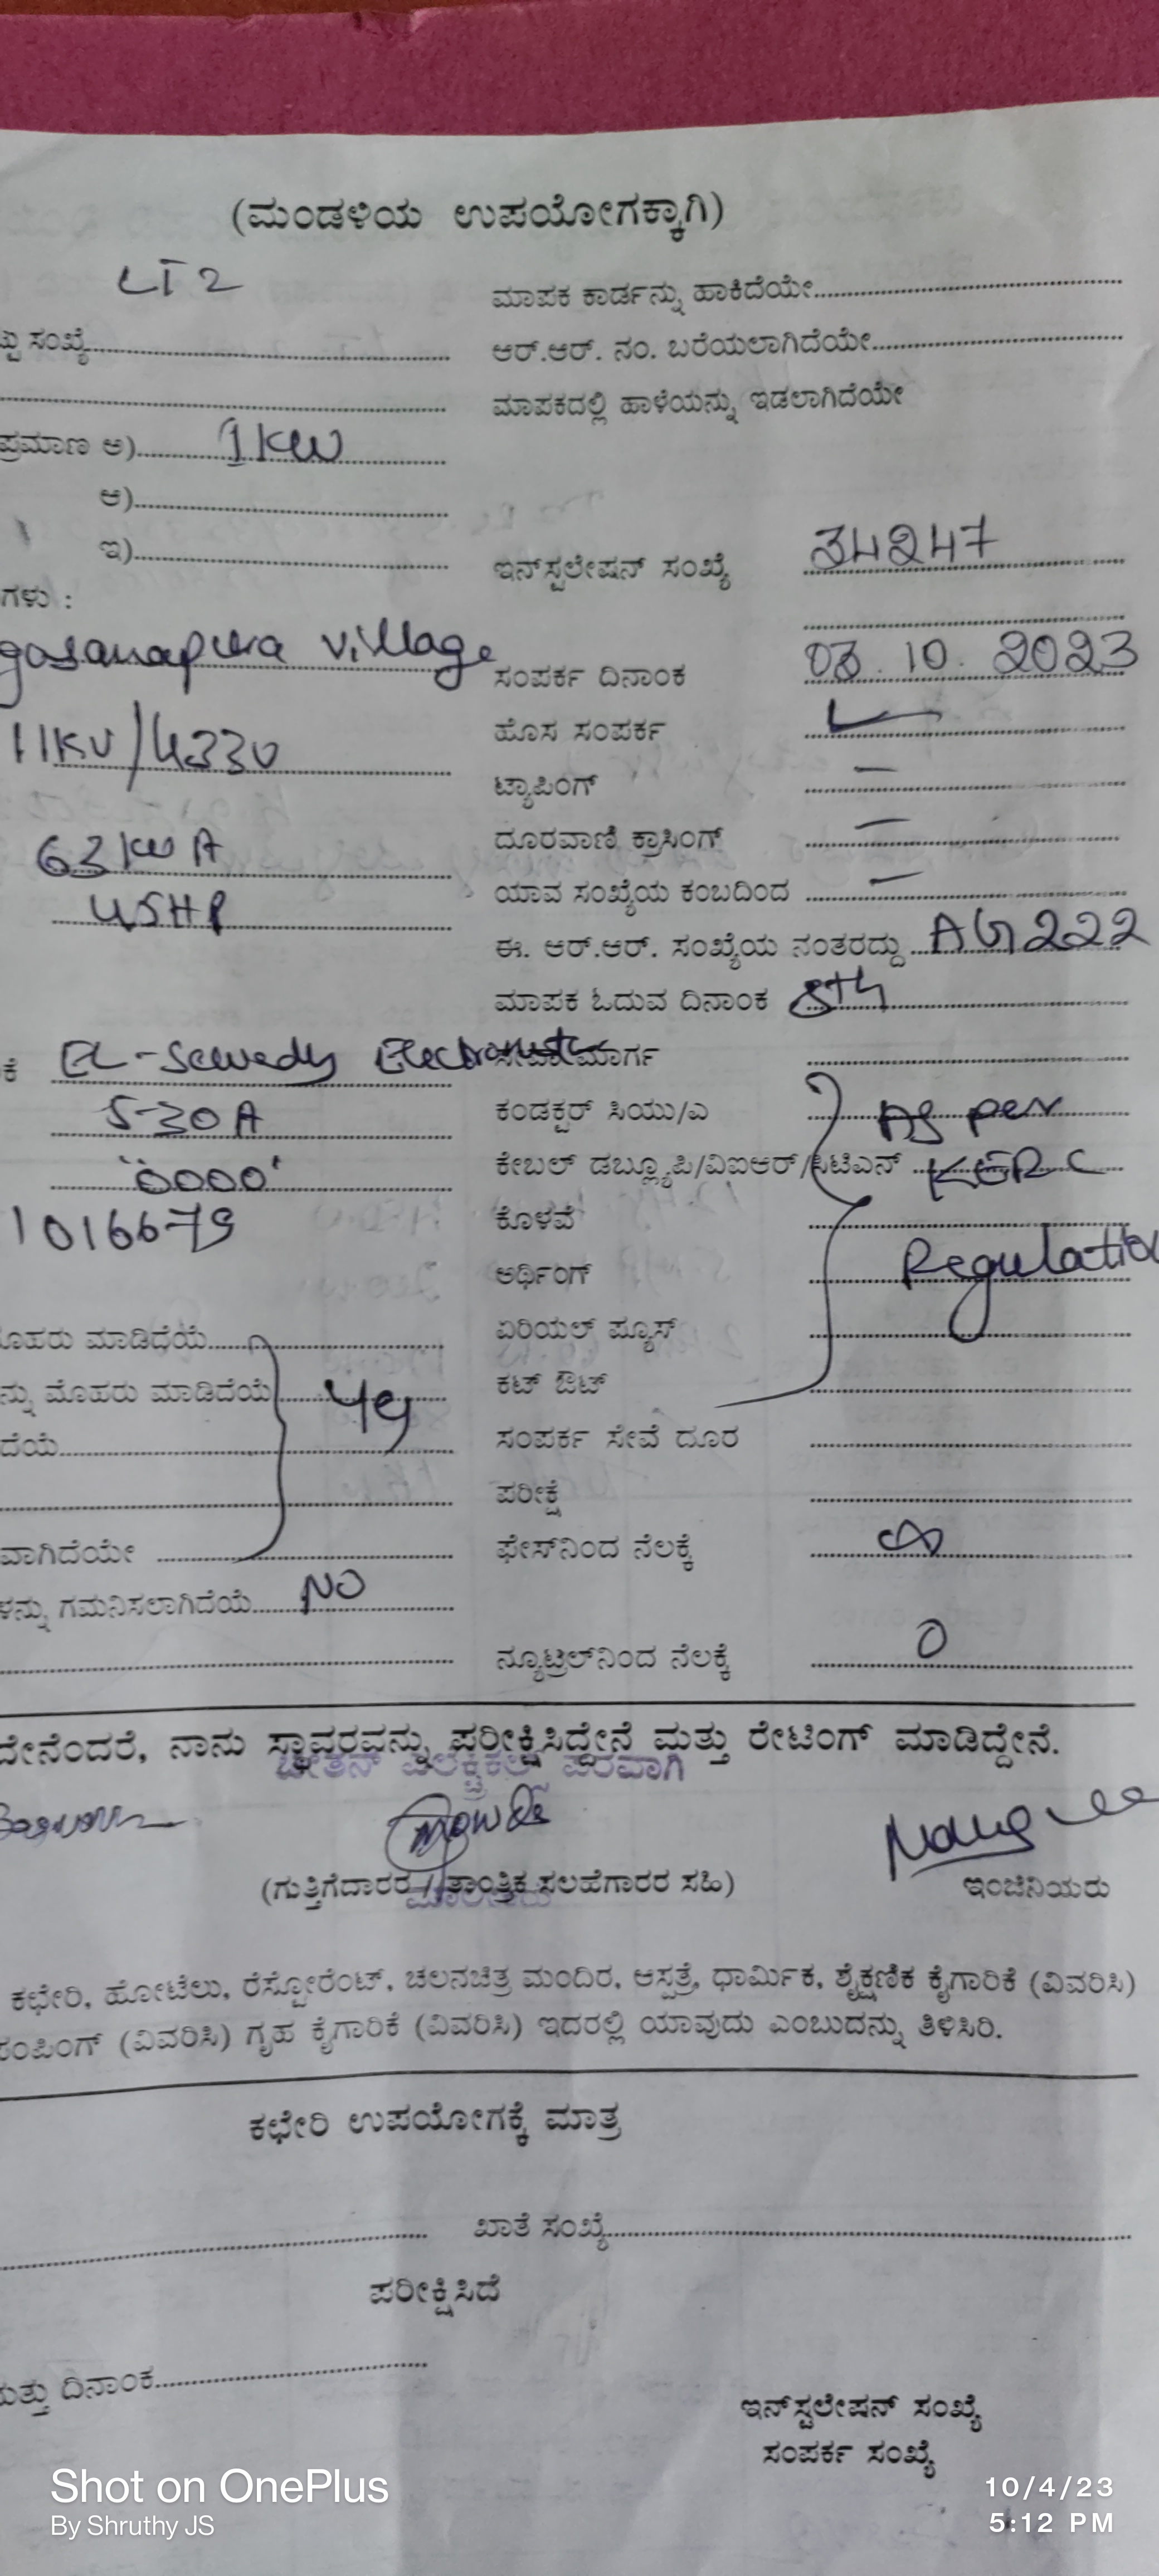 (ಮಂಡಳಿಯ ಉಪಯೋಗಕ್ಕಾಗಿ)
LT 2
ಮಾಪಕ ಕಾರ್ಡನ್ನು ಹಾಕಿದೆಯೇ
ಸಂಖ್ಯೆ
ಆರ್.ಆರ್. ನಂ. ಬರೆಯಲಾಗಿದೆಯೇ
ಮಾಪಕದಲ್ಲಿ ಹಾಳೆಯನ್ನು ಇಡಲಾಗಿದೆಯೇ
ಪ್ರಮಾಣ ಅ) 1KW
ಆ)
ಇ)
ಇನ್‌ಸ್ಟಲೇಷನ್ ಸಂಖ್ಯೆ 34247
ಗಳು :
village
ಸಂಪರ್ಕ ದಿನಾಂಕ 03.10.2023
11KV/433V
ಹೊಸ ಸಂಪರ್ಕ
ಟ್ಯಾಪಿಂಗ್ –
63 KVA
ದೂರವಾಣಿ ಕ್ರಾಸಿಂಗ್ –
45HP
ಯಾವ ಸಂಖ್ಯೆಯ ಕಂಬದಿಂದ –
ಈ. ಆರ್.ಆರ್. ಸಂಖ್ಯೆಯ ನಂತರದ್ದು AG222
ಮಾಪಕ ಓದುವ ದಿನಾಂಕ 8th
ಕೆ EL-Sewedy
ಮಾರ್ಗ
5-30A
ಕಂಡಕ್ಟರ್ ಸಿಯು/ಎ As per
"0000"
ಕೇಬಲ್ ಡಬ್ಲ್ಯೂಪಿ/ವಿಐಆರ್/ಸಿಟಿಎನ್ KERC
1016679
ಕೊಳವೆ
ಅರ್ಥಿಂಗ್
ಮಾಡಿದೆಯೆ
ಏರಿಯಲ್ ಪ್ಯೂಸ್
ಮೊಹರು ಮಾಡಿದೆಯೆ
ಕಟ್ ಔಟ್
ಸಂಪರ್ಕ ಸೇವೆ ದೂರ
ಪರೀಕ್ಷೆ
ಫೇಸ್‌ನಿಂದ ನೆಲಕ್ಕೆ ∞
ಗಮನಿಸಲಾಗಿದೆಯೆ NO
ನ್ಯೂಟ್ರಲ್‌ನಿಂದ ನೆಲಕ್ಕೆ 0
ನಾನು ಸ್ಥಾವರವನ್ನು ಪರೀಕ್ಷಿಸಿದ್ದೇನೆ ಮತ್ತು ರೇಟಿಂಗ್ ಮಾಡಿದ್ದೇನೆ.
(ಗುತ್ತಿಗೆದಾರರ / ತಾಂತ್ರಿಕ ಸಲಹೆಗಾರರ ಸಹಿ)
ಇಂಜಿನಿಯರು
ಕಛೇರಿ, ಹೋಟೆಲು, ರೆಸ್ಟೋರೆಂಟ್, ಚಲನಚಿತ್ರ ಮಂದಿರ, ಆಸ್ಪತ್ರೆ, ಧಾರ್ಮಿಕ, ಶೈಕ್ಷಣಿಕ ಕೈಗಾರಿಕೆ (ವಿವರಿಸಿ)
(ವಿವರಿಸಿ) ಗೃಹ ಕೈಗಾರಿಕೆ (ವಿವರಿಸಿ) ಇದರಲ್ಲಿ ಯಾವುದು ಎಂಬುದನ್ನು ತಿಳಿಸಿರಿ.
ಕಛೇರಿ ಉಪಯೋಗಕ್ಕೆ ಮಾತ್ರ
ಖಾತೆ ಸಂಖ್ಯೆ
ಪರೀಕ್ಷಿಸಿದೆ
ದಿನಾಂಕ
ಇನ್‌ಸ್ಟಲೇಷನ್ ಸಂಖ್ಯೆ
ಸಂಪರ್ಕ ಸಂಖ್ಯೆ
Shot on OnePlus
By Shruthy JS
10/4/23
5:12 PM